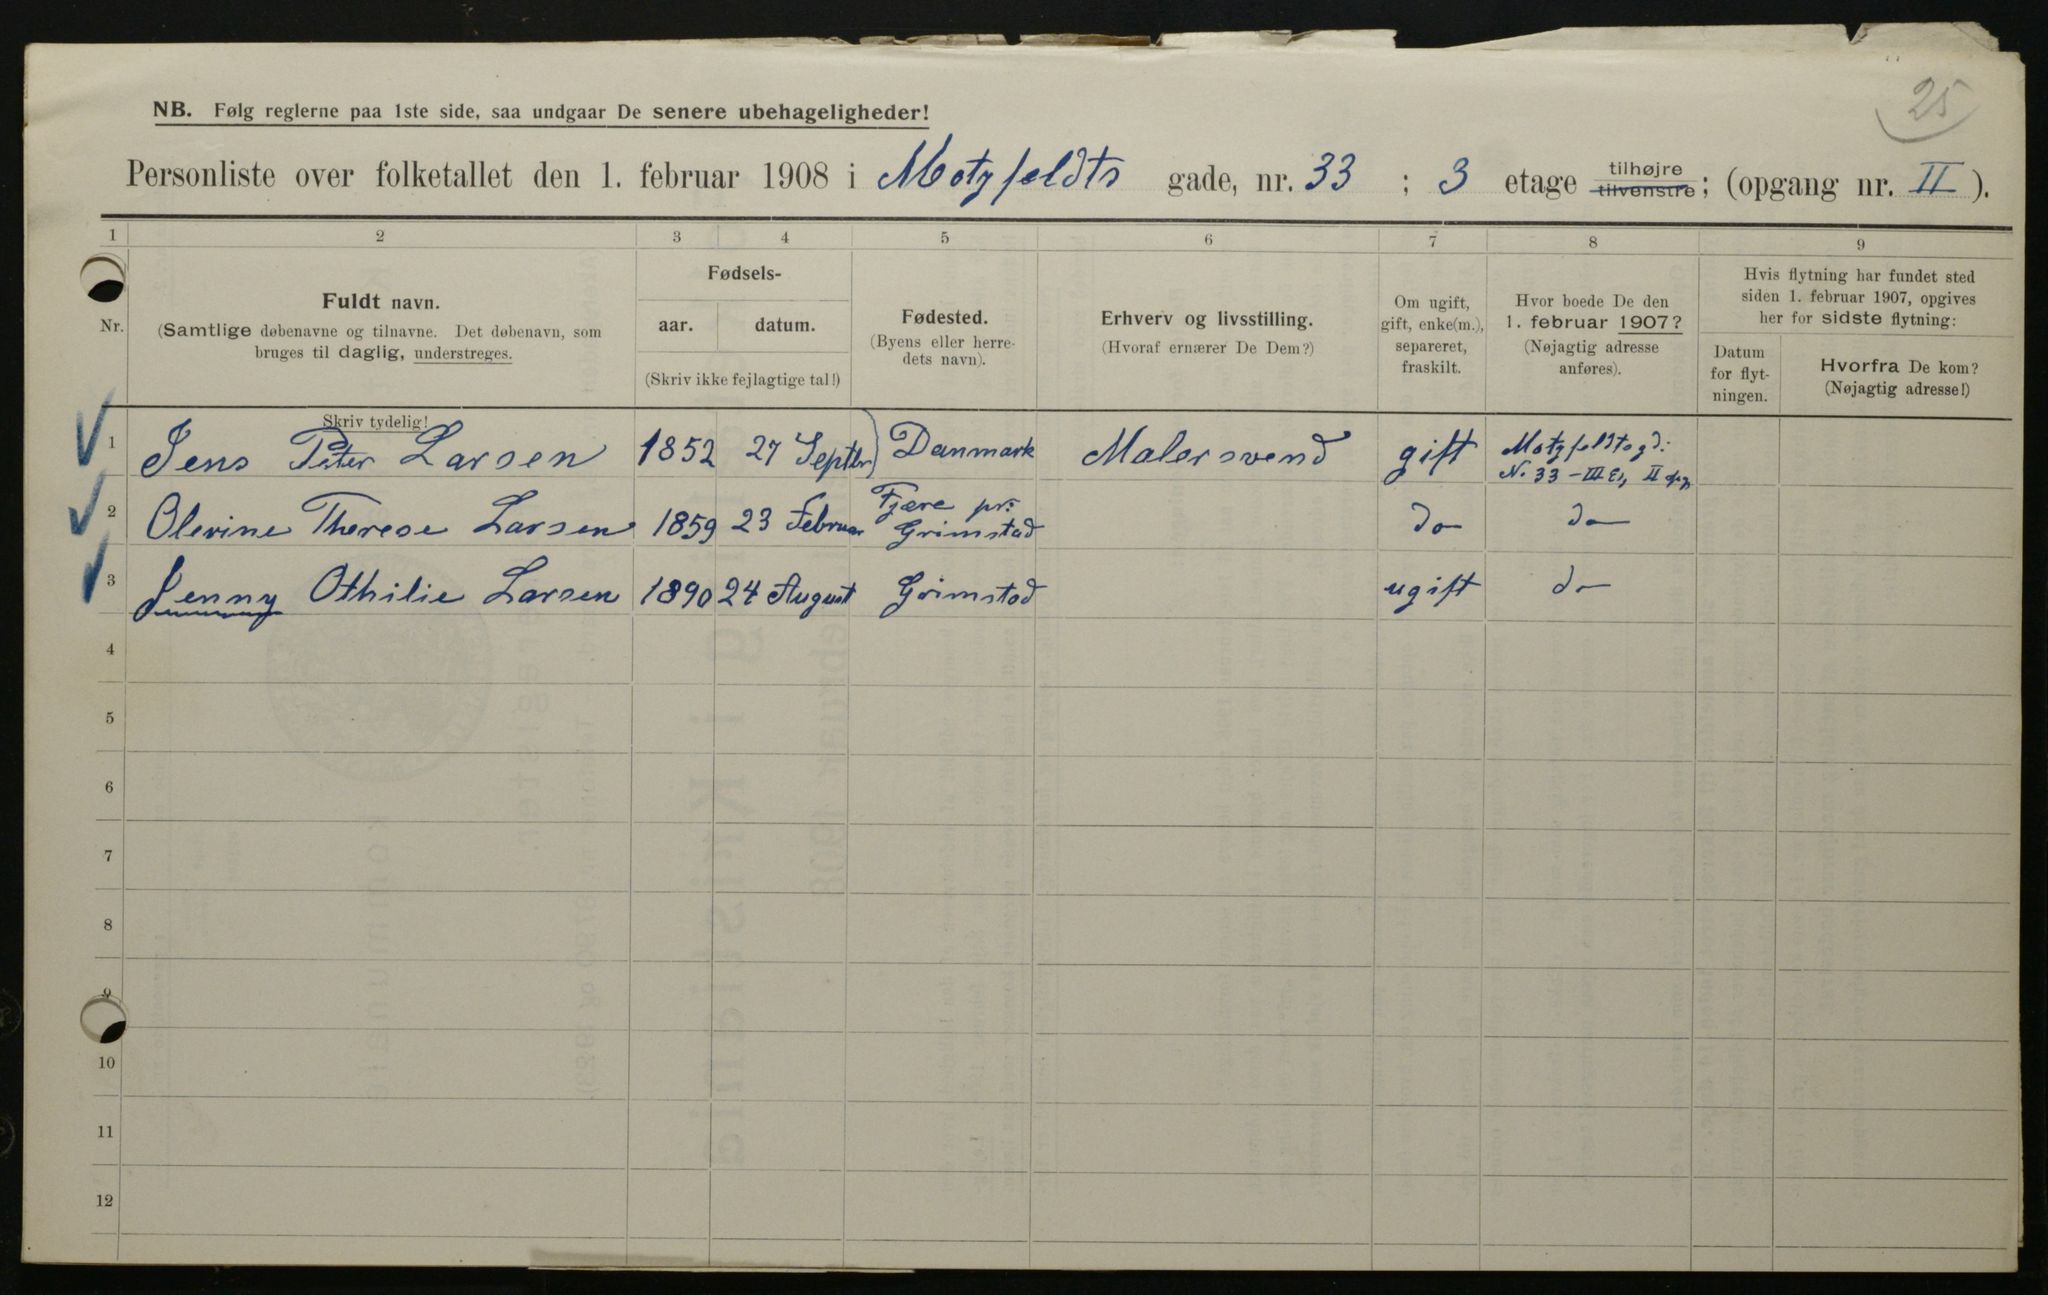 25
NB. Følg reglerne paa 1ste side, saa undgaar De senere ubehageligheder!
Personliste over folketallet den 1. februar 1908 i Motzfeldts gade, nr. 33 ; 3 etage tilhøjre tilvenstre; (opgang nr. II ).
1 2 3 4 5 6 7 8 9
Nr.
Fuldt navn.
(Samtlige døbenavne og tilnavne. Det døbenavn, som
bruges til daglig, understreges.
Skriv tydelig!
Fødsels-
aar. datum.
(Skriv ikke fejlagtige tal!)
Fødested.
(Byens eller herre-
dets navn).
Erhverv og livsstilling.
(Hvoraf ernærer De Dem?)
Om ugift,
gift, enke(m.),
separeret,
fraskilt.
Hvor boede De den
1. februar 1907?
(Nøjagtig adresse
anføres).
Hvis flytning har fundet sted
siden 1. februar 1907, opgives
her for sidste flytning:
Datum
for flyt-
ningen.
Hvorfra De kom?
(Nøjagtig adresse!)
1 Jens Peter Larsen 1852 27 Septbr Danmark Malersvend gift Motzfeldtsgd: No 33 - III Et, II
2 Olevine Therese Larsen 1859 23 Februar Fjære pr: Grimstad do do
3 Jenny Othilie Larsen 1890 24 August Grimstad ugift do
4
5
6
7
8
9
10
11
12